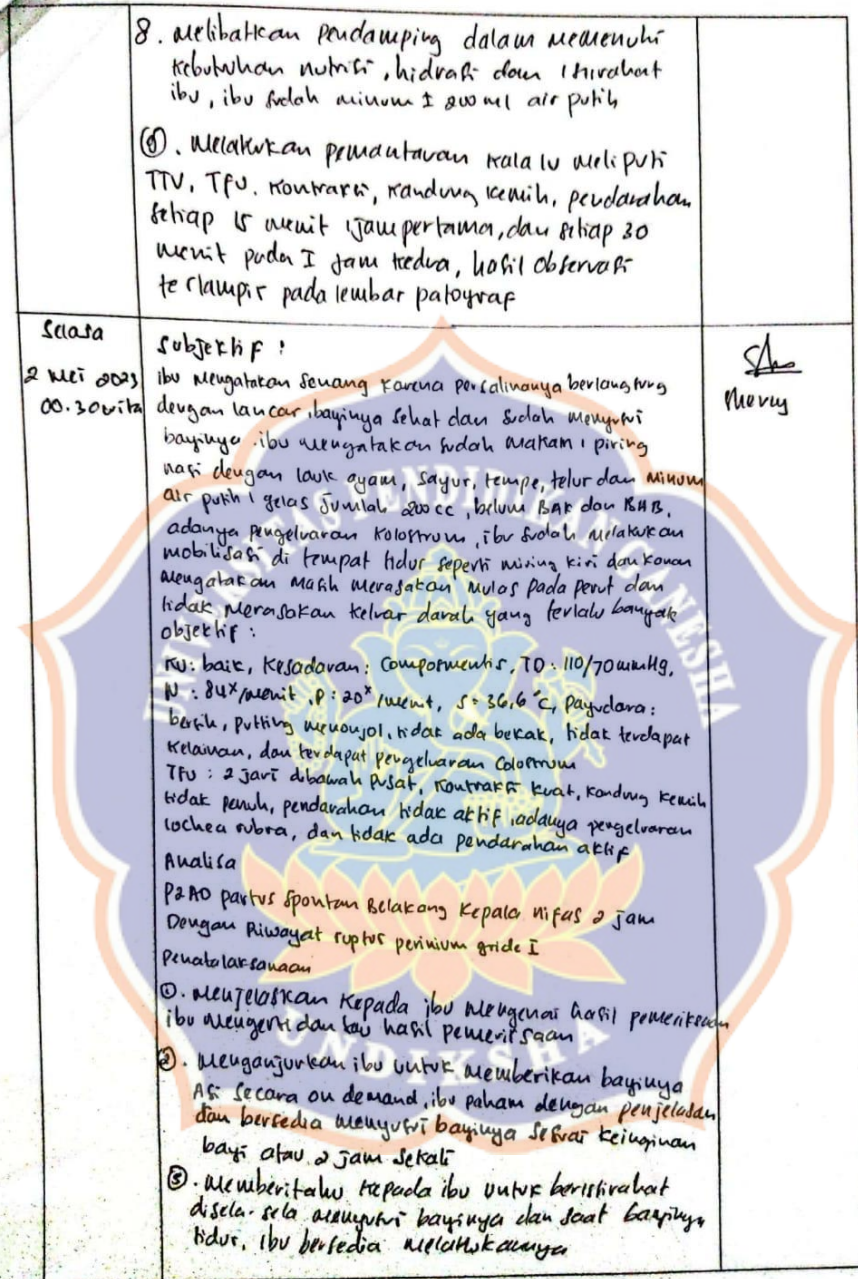 8. Melibatkan pendamping dalam memenuhi
kebutuhan nutrisi, hidrasi dan istirahat
ibu, ibu sudah minum ± 200 ml air putih
9. Melakukan pemantauan kala IV meliputi
TTV, TFU, Kontraksi, kandung kemih, pendarahan
setiap 15 menit 1 jam pertama, dan setiap 30
menit pada I jam kedua, hasil observasi
terlampir pada lembar patograf
Selasa
2 Mei 2023
00.30 wita
Subjektif :
ibu mengatakan senang karena persalinanya berlangsung
dengan lancar, bayinya sehat dan sudah menyusui
bayinya. ibu mengatakan sudah makan 1 piring
nasi dengan lauk ayam, sayur, tempe, telur dan minum
air putih 1 gelas jumlah 200 cc, belum BAK dan BAB,
adanya pengeluaran kolostrum, ibu sudah melakukan
mobilisasi di tempat tidur seperti miring kiri dan kanan
mengatakan masih merasakan mulas pada perut dan
tidak merasakan keluar darah yang terlalu banyak
objektif :
KU: baik, Kesadaran: Composmentis, TD: 110/70 mmHg,
N : 84x/menit, P: 20x/menit, S: 36,6°C, Payudara:
bersih, putting menonjol, tidak ada bekak, tidak terdapat
kelainan, dan terdapat pengeluaran Colostrum
TFU : 2 jari dibawah pusat, kontraksi kuat, kandung kemih
tidak penuh, pendarahan tidak aktif, adanya pengeluaran
lochea rubra, dan tidak ada pendarahan aktif
Analisa
P2A0 partus Spontan Belakang Kepala nifas 2 jam
Dengan Riwayat ruptur perinium gride I
Penatalaksanaan
1. Menjelaskan Kepada ibu Mengenai hasil pemeriksaan
ibu mengerti dan tau hasil pemeriksaan
2. Menganjurkan ibu untuk memberikan bayinya
Asi Secara on demand, ibu paham dengan penjelasan
dan bersedia menyusui bayinya Sesuai keinginan
bayi atau 2 jam Sekali
3. Memberitahu kepada ibu untuk beristirahat
disela-sela menyusui bayinya dan saat bayinya
tidur, ibu bersedia melakukannya
UNIVERSITAS PENDIDIKAN GANESHA
UNDIKSHA